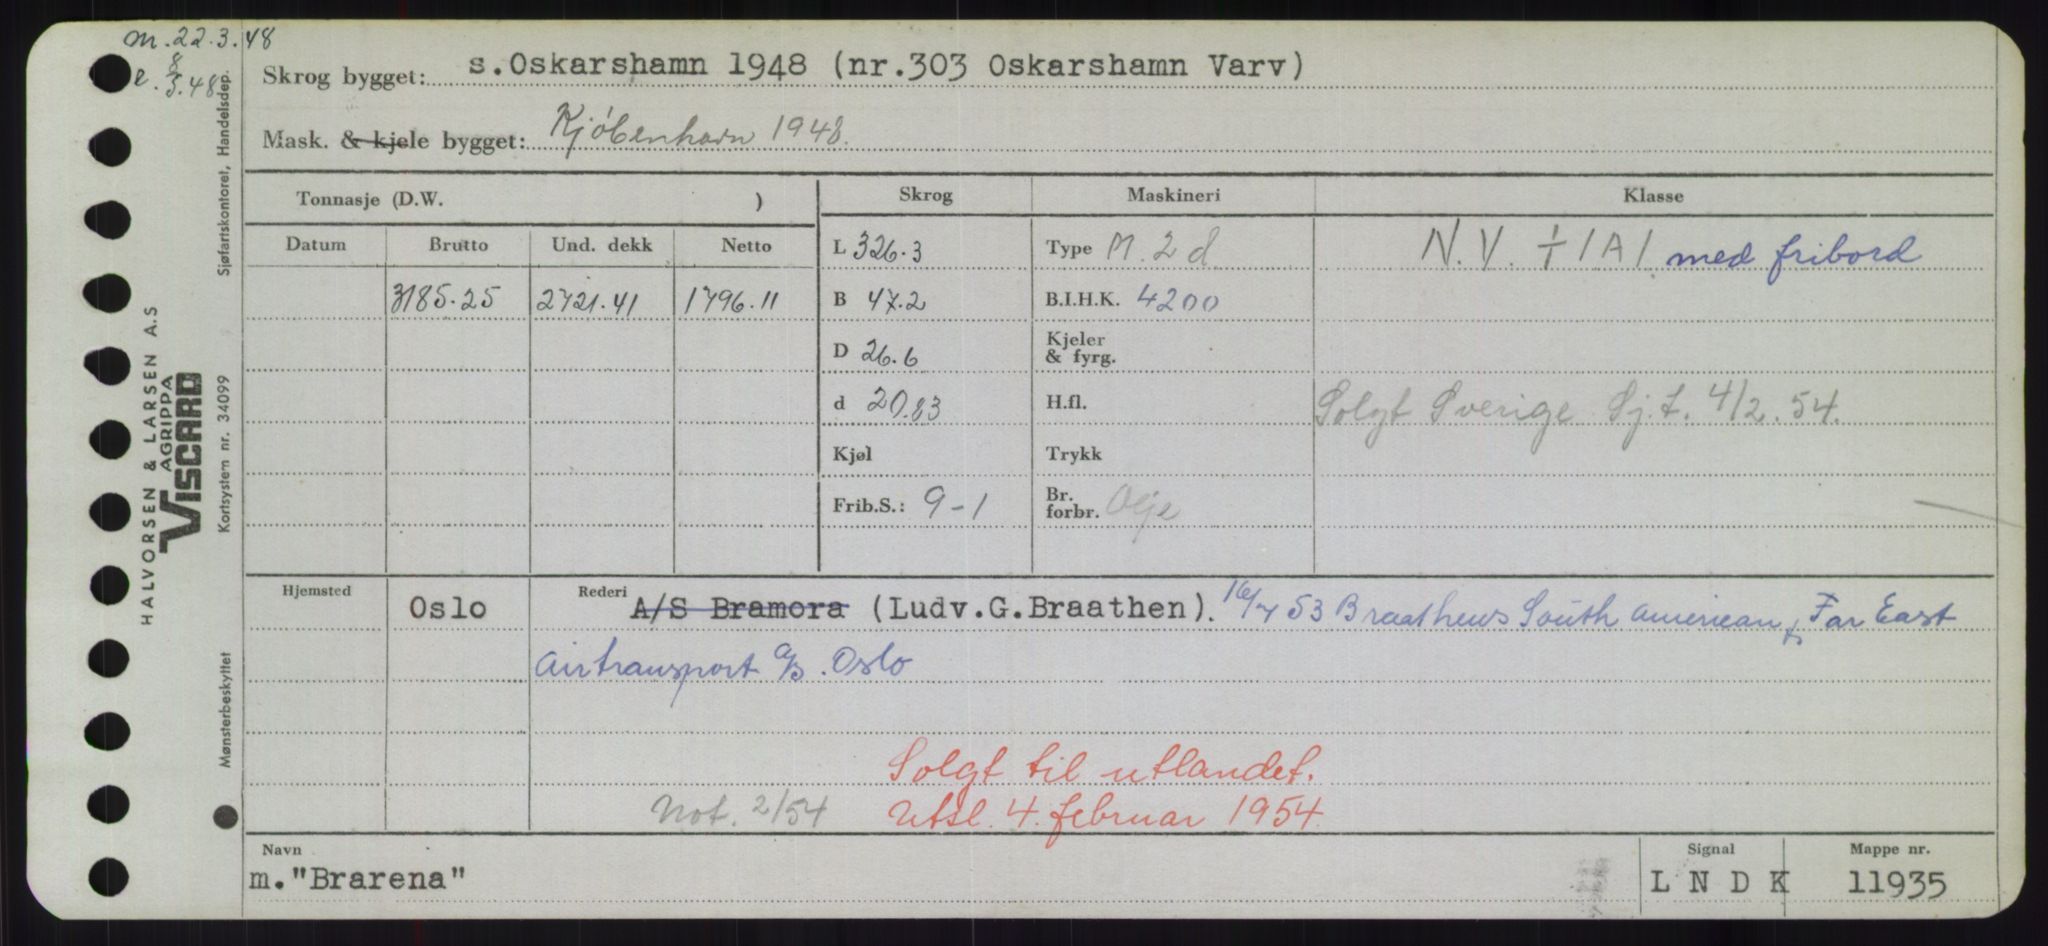 m. 22.3.48
e. 8/3.48
Skrog bygget: s. Oskarshamn 1948 (nr. 303 Oskarshamn Varv)
Mask. & kjele bygget: Kjøbenhavn 1948.
Tonnasje (D.W. )
Skrog
Maskineri
Klasse
Datum Brutto Und. dekk Netto
L 326.3
Type M. 2 d.
N.V. + 1A1. med fribord
3185.25 2721.41 1796.11
B 47.2
B.I.H.K. 4200
D 26.6
Kjeler
& fyrg.
d 20.83
H.fl.
Solgt Sverige Sj.t. 4/2.54.
Kjøl
Trykk
Frib.S.: 9-1
Br.
forbr. Olje
Hjemsted Oslo Rederi A/S Bramora (Ludv.G.Braathen). 16/7 53 Braathens South American & Far East
Airtransport A/S. Oslo
Solgt til utlandet.
Not. 2/54 Utsl. 4. februar 1954.
Navn
Signal
Mappe nr.
m."Brarena" L N D K 11935
Sjøfartskontoret, Handelsdep.
Kortsystem nr. 34099
Mønsterbeskyttet
HALVORSEN & LARSEN A.S
AGRIPPA
VISCARD